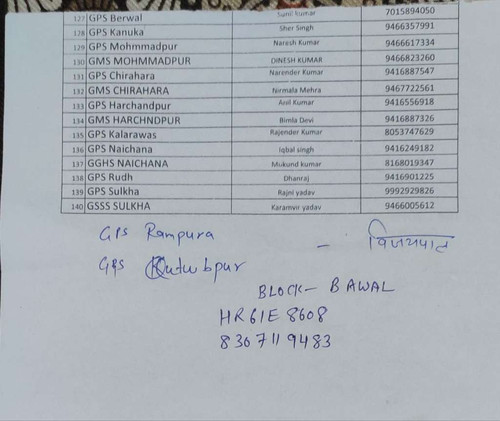 127 GPS Berwal Sunil kumar 7015894050
128 GPS Kanuka Sher Singh 9466357991
129 GPS Mohmmadpur Naresh Kumar 9466617334
130 GMS MOHMMADPUR DINESH KUMAR 9466823260
131 GPS Chirahara Narender Kumar 9416887547
132 GMS CHIRAHARA Nirmala Mehra 9467722561
133 GPS Harchandpur Anil Kumar 9416556918
134 GMS HARCHNDPUR Bimla Devi 9416887326
135 GPS Kalarawas Rajender Kumar 8053747629
136 GPS Naichana Iqbal singh 9416249182
137 GGHS NAICHANA Mukund kumar 8168019347
138 GPS Rudh Dhanraj 9416901225
139 GPS Sulkha Rajni yadav 9992929826
140 GSSS SULKHA Karamvir yadav 9466005612
GPS Rampura - विजयपाल
GPS Kutubpur
BLOCK- BAWAL
HR61E 8608
8307119483